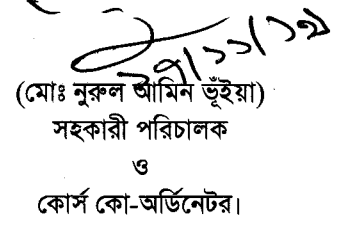 (মোঃ নুরুল আমিন ভূঁইয়া)
সহকারী পরিচালক
ও
কোর্স কো-অর্ডিনেটর।